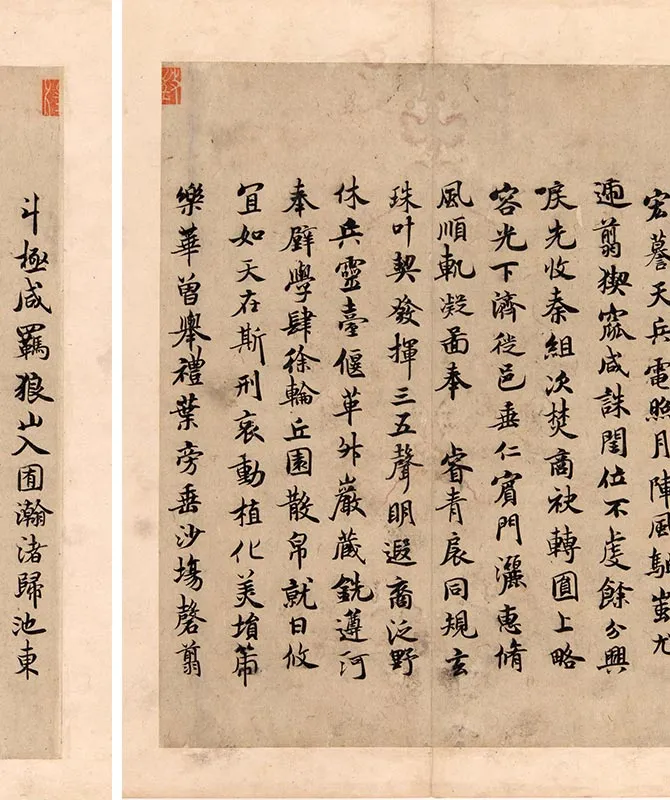 宏謩天兵電照月陣風驅蚩尤
逦翦猰窳咸誅閏位不虔餘分興
唳先收秦組次焚商袂轉圓上略
容光下濟從邑垂仁賓門灑惠脩
風順軌凝啚奉 睿青扆同規玄
珠叶契發揮三五聲明遐裔泛野
休兵靈臺偃革外巖蔵銑遵河
奉璧學肆徐輪丘園散帛就日攸
宜如天在斯刑哀動植化美
樂華曾舉禮葉旁垂沙塲罄翦
斗極咸羈狼山入囿瀚渚歸池東